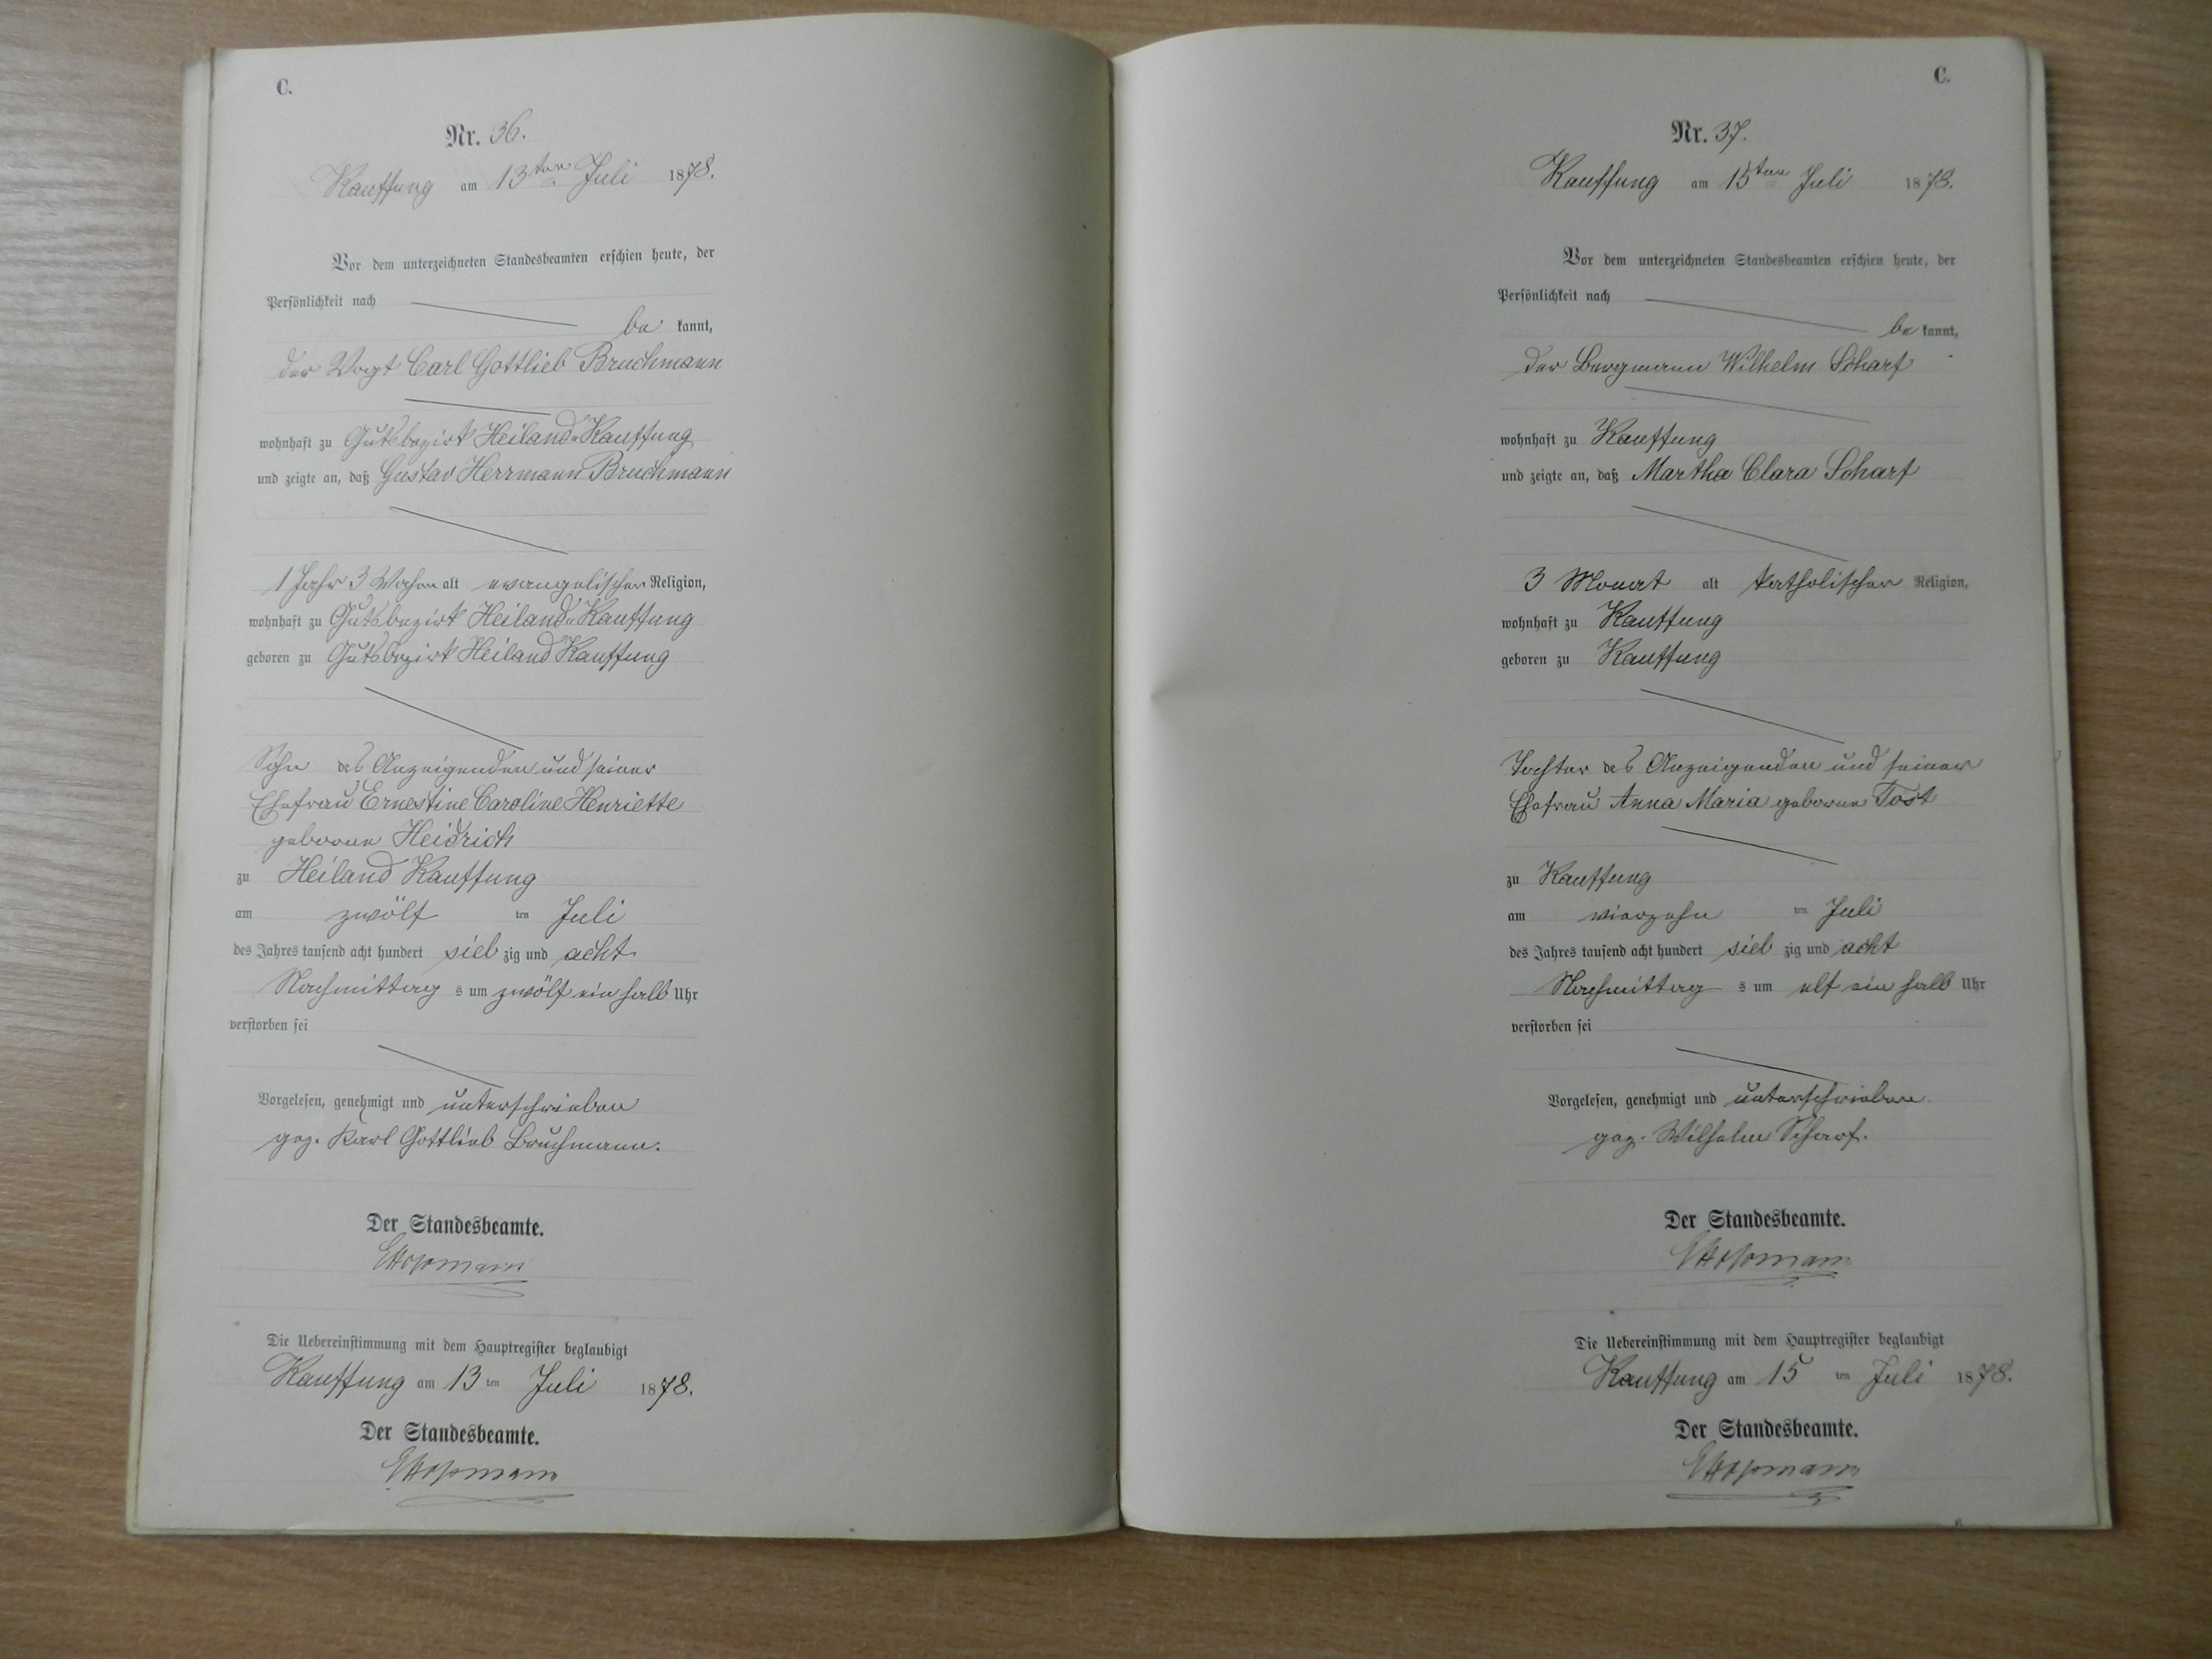 C.
Nr. 36.
Kauffung am 13ten Juli 1878.
Vor dem unterzeichneten Standesbeamten erschien heute, der
Persönlichkeit nach
be kannt,
der Vogt Carl Gottlieb Bruchmann
wohnhaft zu Gutsbezirk Heiland-Kauffung
und zeigte an, daß Gustav Herrmann Bruchmann
1 Jahr 3 Wochen alt evangelischer Religion,
wohnhaft zu Gutsbezirk Heiland-Kauffung
geboren zu Gutsbezirk Heiland Kauffung
Sohn des Anzeigenden und seiner
Ehefrau Ernestine Caroline Henriette
geborene Heidrich
zu Heiland Kauffung
am zwölf ten Juli
des Jahres tausend acht hundert sieb zig und acht
Nachmittag s um zwölf ein halb Uhr
verstorben sei
Vorgelesen, genehmigt und unterschrieben
gez. Karl Gottlieb Bruchmann.
Der Standesbeamte.
Die Uebereinstimmung mit dem Hauptregister beglaubigt
Kauffung am 13 ten Juli 1878.
Der Standesbeamte.
C.
Nr. 37.
Kauffung am 15ten Juli 1878.
Vor dem unterzeichneten Standesbeamten erschien heute, der
Persönlichkeit nach
be kannt,
der Bergmann Wilhelm Scharf
wohnhaft zu Kauffung
und zeigte an, daß Martha Clara Scharf
3 Monat alt katholischer Religion,
wohnhaft zu Kauffung
geboren zu Kauffung
Tochter des Anzeigenden und seiner
Ehefrau Anna Maria geborene Tost
zu Kauffung
am vierzehn ten Juli
des Jahres tausend acht hundert sieb zig und acht
Nachmittag s um elf ein halb Uhr
verstorben sei
Vorgelesen, genehmigt und unterschrieben.
gez. Wilhelm Scharf.
Der Standesbeamte.
Die Uebereinstimmung mit dem Hauptregister beglaubigt
Kauffung am 15 ten Juli 1878.
Der Standesbeamte.